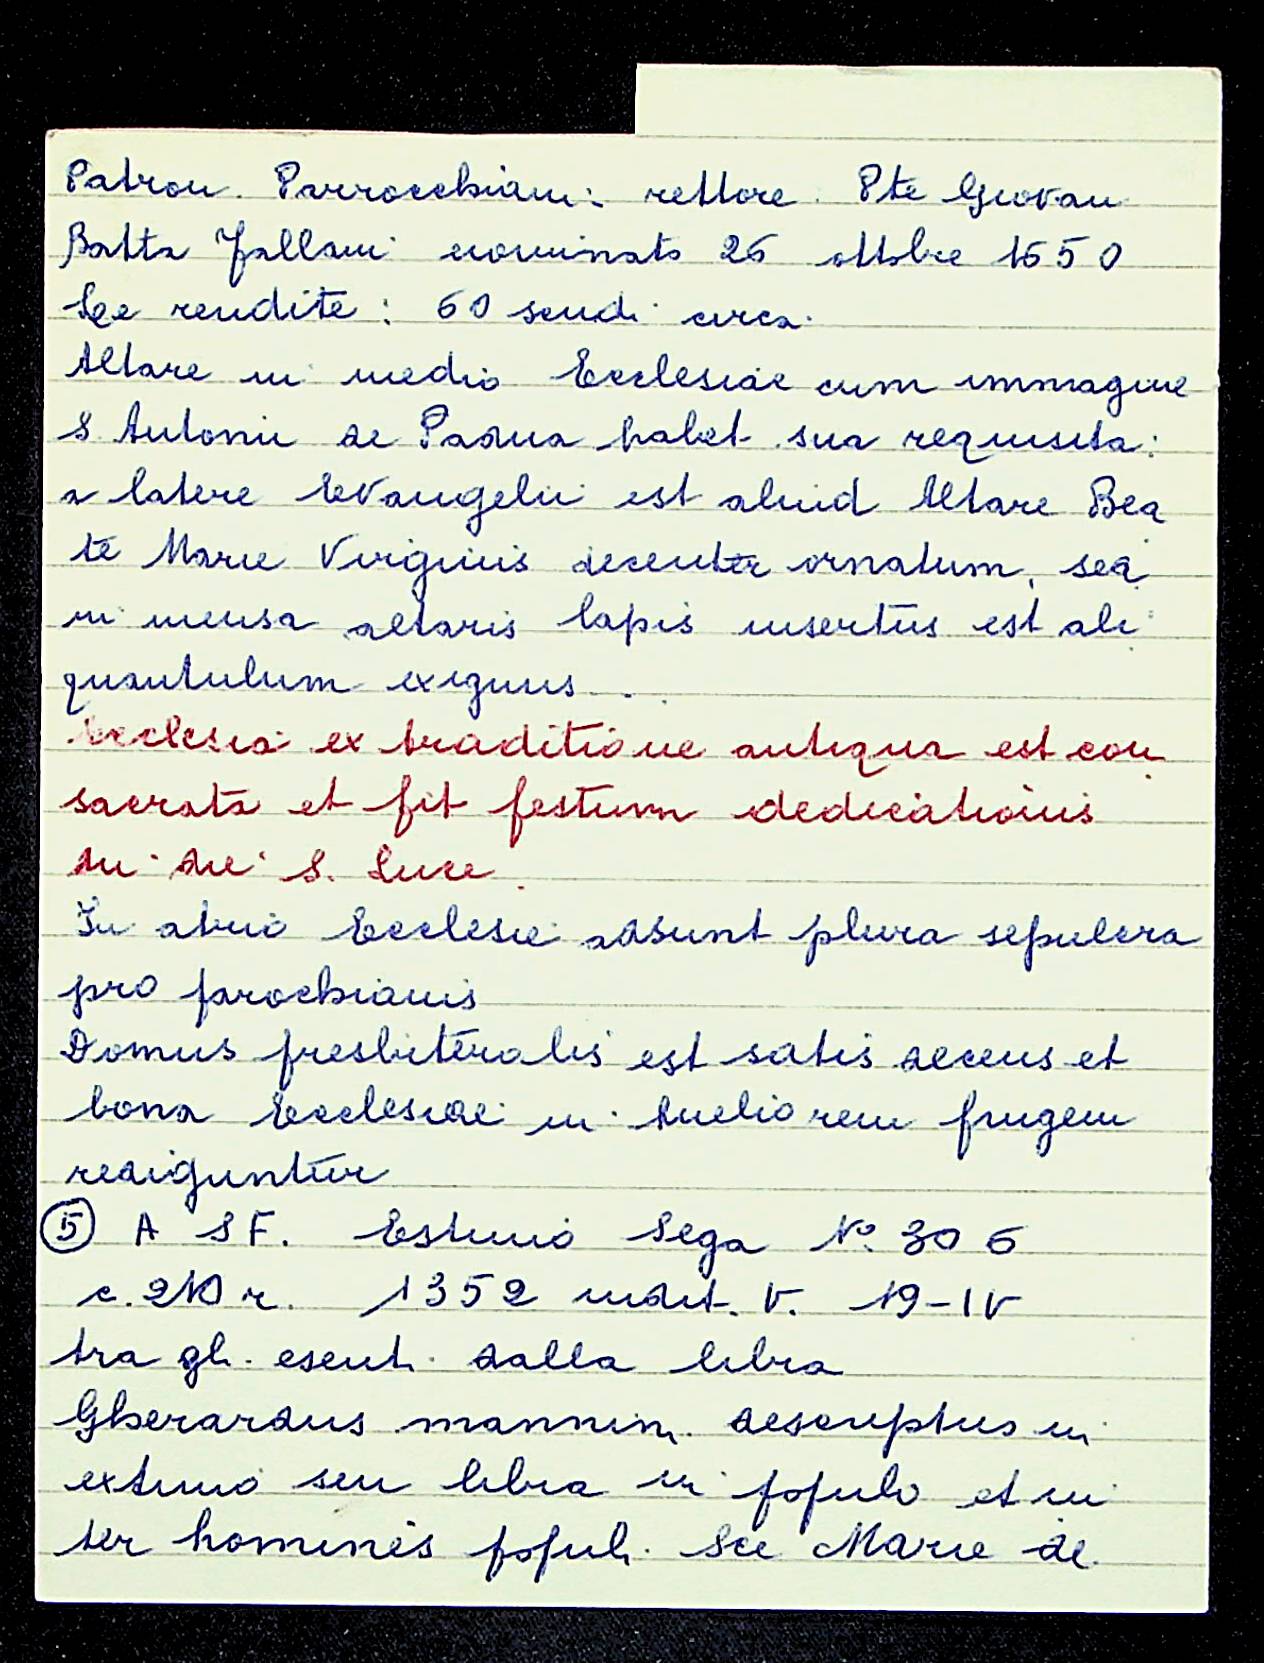 Patron. Parrocchiani: rettore. Pte Giovan
Batta Fallani nominato 26 ottobre 1650
Le rendite: 60 scudi circa.
Altare in medio Ecclesiae cum immagine
S. Antonii de Padua habet sua requisita:
a latere Evangelii est aliud Altare Bea
te Marie Virginis decenter ornatum, sed
in mensa altaris lapis insertus est ali
quantulum exiguus.
Ecclesia ex traditione antiqua est con
sacrata et fit festum dedicationis
in die S. Luce.
In atrio Ecclesie adsunt plura sepulcra
pro parochianis
Domus presbiteralis est satis decens et
bona Ecclesiae in meliorem frugem
rediguntur
5 A S F. Estimo Sega N° 306
c. 210 r. 1352 indit. V. 19-IV
tra gli esenti dalla libra
Gherardus mannini descriptus in
extimo seu libra in populo et in
ter homines populi Sce Marie de